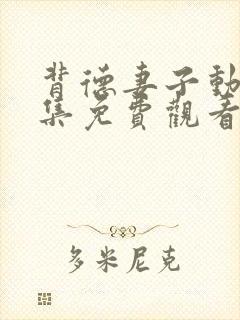 背德妻子動
集免費觀看
多米尼克